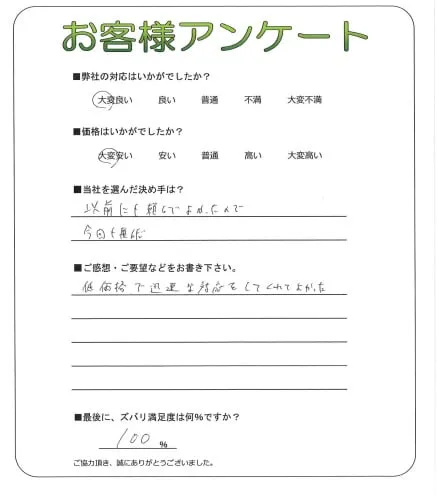 お客様アンケート
■弊社の対応はいかがでしたか？
大変良い 良い 普通 不満 大変不満
■価格はいかがでしたか？
大変安い 安い 普通 高い 大変高い
■当社を選んだ決め手は？
以前にも頼んでよかったので
今回も頼んだ
■ご感想・ご要望などをお書き下さい。
低価格で迅速な対応をしてくれてよかった
■最後に、ズバリ満足度は何％ですか？
100 %
ご協力頂き、誠にありがとうございました。